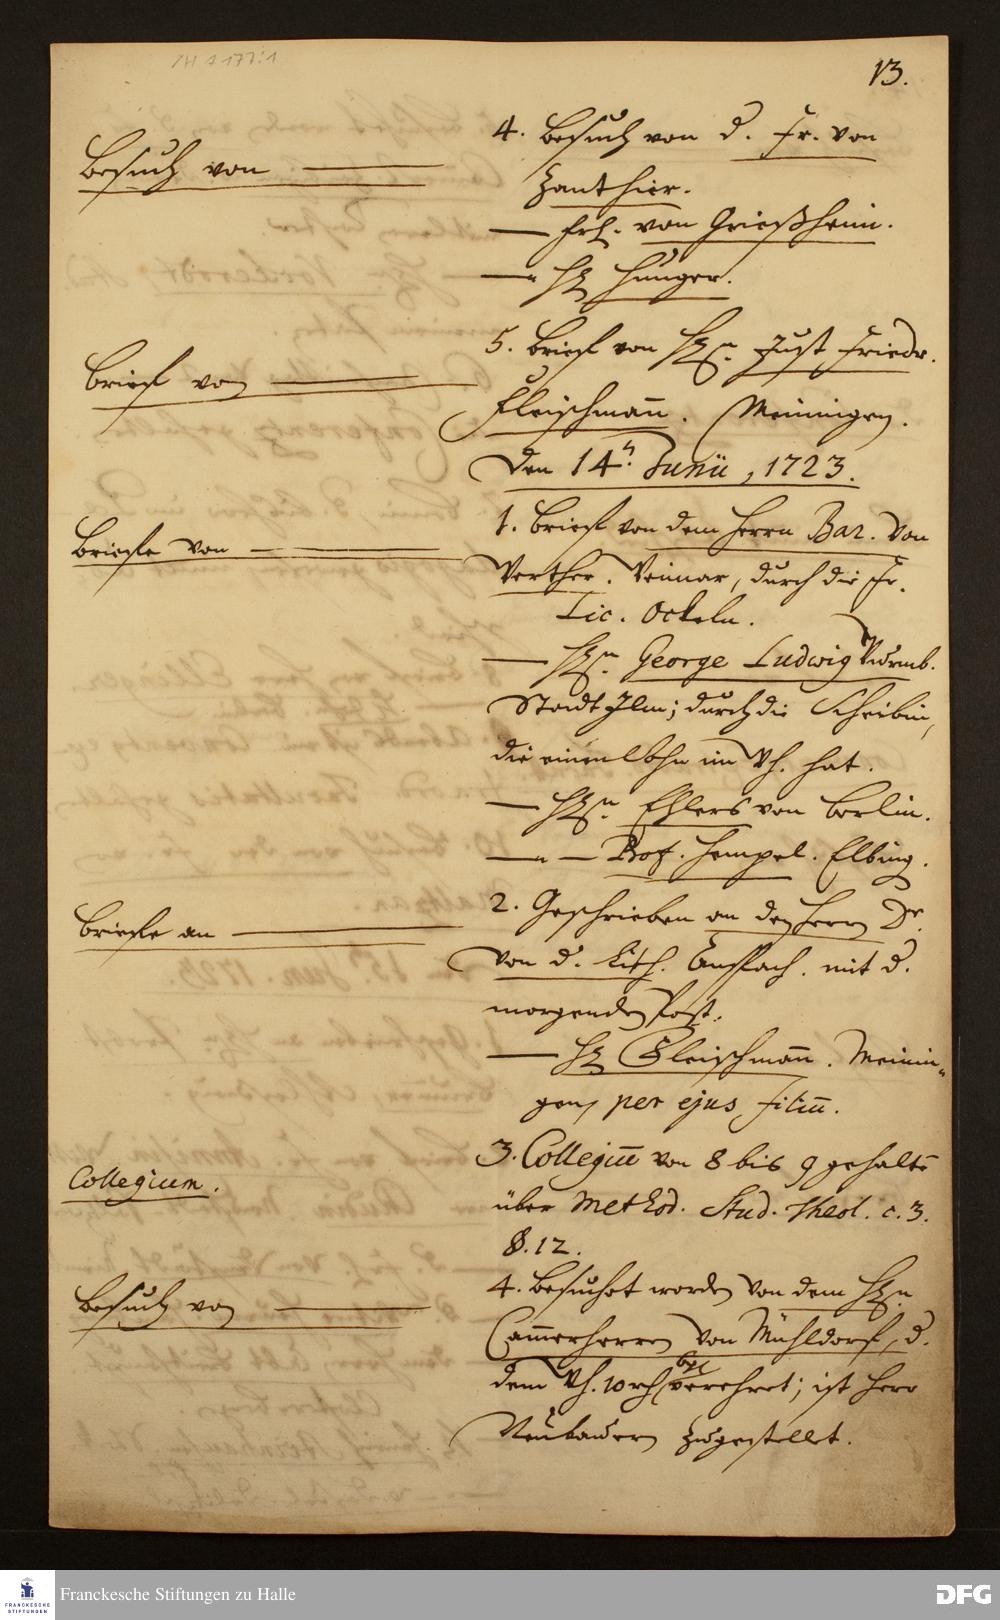 /H A 177:1
13.
Besuch von
4. Besuch von d. Fr. von
Zanthier.
— Frl. von Grießheim.
—" H. Hunger.
Brief von
5. Brief von H. Just Friedr.
Fleischmañ. Meiningen.
Den 14. Junii, 1723.
Briefe von
1. Brief von dem Herrn Bar. von
Werther. Weimar, durch die Fr.
Lic. Ockeln.
— H. George Ludwig Wurmb.
Stadt Ilm; durch die
die einen Sohn im Wh. hat.
— H. Ehlers von Berlin.
—"— Prof. Hempel. Elbing.
Briefe an
2. Geschrieben an den Herrn Dr.
von d. Lith. Anspach. mit d.
morgenden Post.
— H. Fleischmañ. Meinin-
gen, per ejus filiũ.
Collegium.
3. Collegiũ von 8 bis 9 gehalten
über Method. Stud. Theol. c. 3.
§. 12.
Besuch von
4. Besuchet worden von dem H.
Cammerherrn von Mühldorf, d.
dem Wh. 10 rth. verehret; ist Herr
Neubauern zugestellet.
Franckesche Stiftungen zu Halle
FRANCKESCHE
STIFTUNGEN
DFG